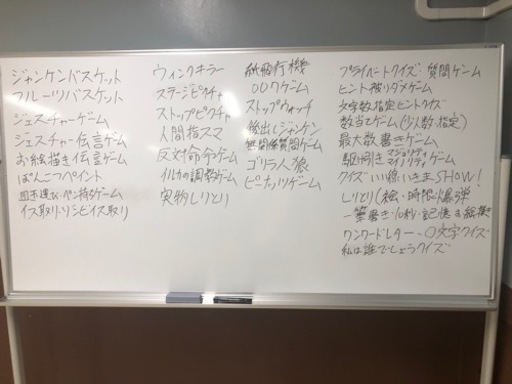 ジャンケンバスケット
フルーツバスケット
ジェスチャーゲーム
ジェスチャー伝言ゲーム
お絵描き伝言ゲーム
ぽんこつペイント
皿を運び・ペン積むゲーム
イス取り・ゾンビイス取り
ウィンクキラー
ステージピクチャ
ストップピクチャ
人間指スマ
反対命令ゲーム
イルカの調教ゲーム
実物しりとり
紙飛行機
○○クゲーム
ストップウォッチ
後出しジャンケン
無関係質問ゲーム
ゴリラ人狼
ピーナッツゲーム
プライベートクイズ・質問ゲーム
ヒント被りダメゲーム
文字数指定ヒントクイズ
数当てゲーム(少人数・指定)
最大数書きゲーム
駆け引きマジョリティマイノリティゲーム
クイズいい線いきまSHOW!
しりとり(絵・時限爆弾
一筆書き・10秒・記憶お絵描き
ワンワードレター・○文字クイズ
私は誰でしょうクイズ